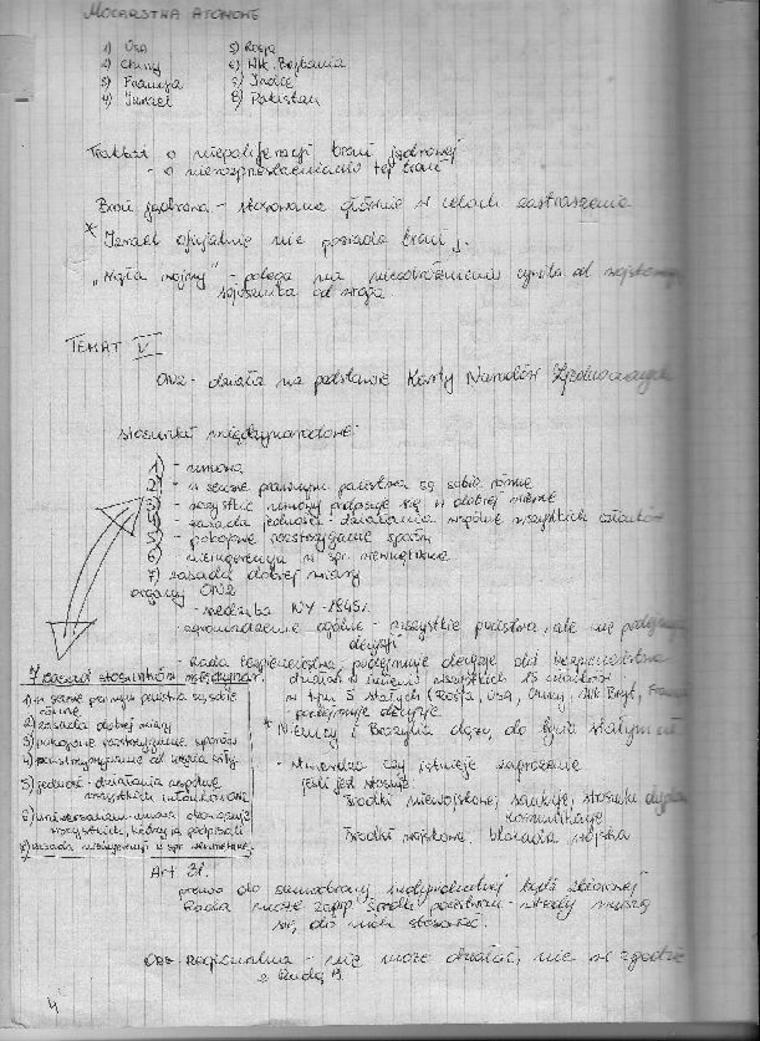 MOCARSTWA ATOMOWE
1) Usa 5) Rosja
2) Chiny 6) Wlk. Brytania
3) Francja 7) Indie
4) Izrael 8) Pakistan
Traktat o
- o nierozprzestrzenianiu tej broni
Broń jądrowa - stosowana głównie w celach zastraszenia
* Izrael oficjalnie nie posiada broni j.
"Mgła wojny" - polega na nieodróżnieniu cywila od
sojusznika od wroga.
TEMAT V
ONZ - działa na podstawie Karty Narodów Zjednoczonych
stosunki międzynarodowe:
1) - umowa
2) - w sensie prawnym państwa są sobie równe
3) - wszystkie umowy podpisuje się w dobrej wierze
4) - zasada jedności - działania wspólne wszystkich członków
5) - pokojowe rozstrzyganie sporów
6) - nieingerencja w spr. wewnętrzne
7) zasada dobrej wiary
organy ONZ
- siedziba NY - 1945r.
- zgromadzenie ogólne - wszystkie państwa, ale nie
decyzji
- Rada bezpieczeństwa, podejmuje decyzje dot. bezpieczeństwa
działa w imieniu wszystkich 15 członków
w tym 5 stałych (Rosja, Usa, Chiny, Wlk Bryt,
- podejmuje decyzje
* Niemcy i Brazylia dążą do bycia stałymi
- stwierdza czy istnieje zagrożenie
jeśli jest stosuje:
środki niewojskowe; sankcje, stosunki
komunikacje
środki wojskowe: blokada wojska
7 zasad stosunków międzynar.
1) w sensie prawnym państwa są sobie
równe
2) zasada dobrej wiary
3) pokojowe rozstrzyganie sporów
4) powstrzymywanie od użycia siły
5) jedność - działania wspólne
wszystkich członków ONZ
6) uniwersalizm - umowa obowiązuje
wszystkich, którzy ją podpisali
7) zasada nieingerencji w spr. wewnętrzne.
Art 51.
prawo do samoobrony indywidualnej bądź zbiorowej
Rada może środki państwom - wtedy muszą
się do nich stosować.
Org. regionalna - nie może działać, nie w zgodzie
z Radą B.
4